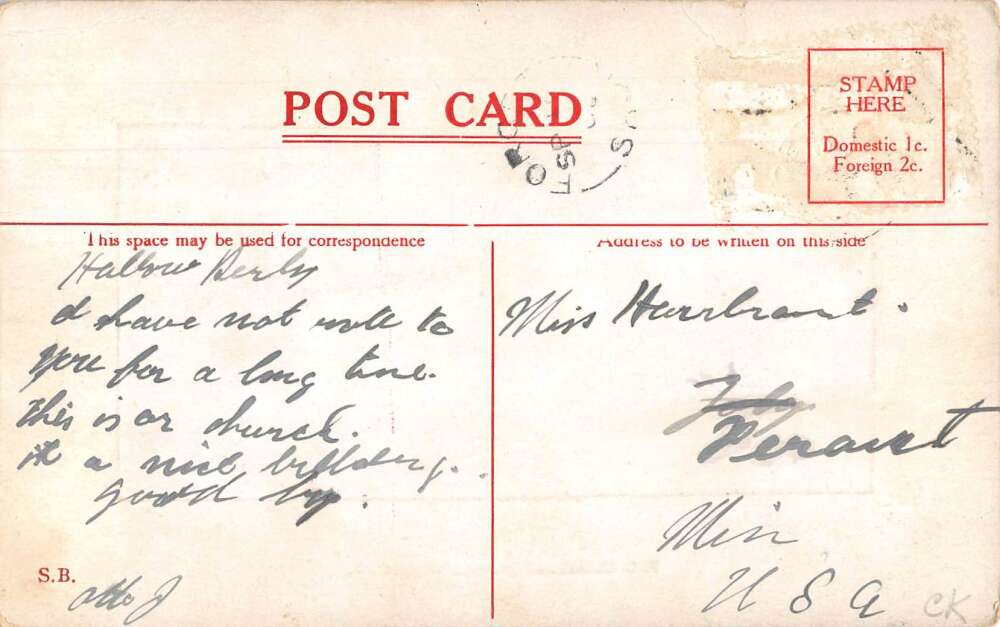 POST CARD
STAMP
HERE
Domestic 1c.
Foreign 2c.
This space may be used for correspondence
Address to be written on this side
I have not
to
you for a long time.
this is or church.
it a nice
good by.
Otto J
S.B.
Miss
Min
U S A
CK